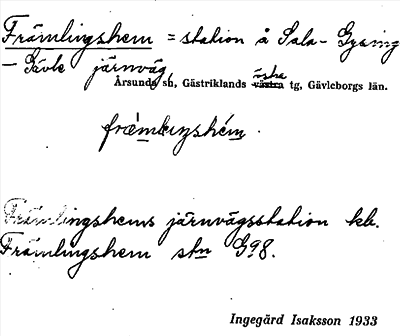 Främlingshem = station å Sala - Gysinge
- Gävle järnväg,
östra
Årsunda sn, Gästriklands västra tg, Gävleborgs län.
Främlingshems järnvägsstation kb.
Främlingshem stn G98.
Ingegärd Isaksson 1933